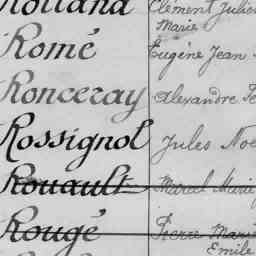 Rolland Clément Julien
Marie
Romé Eugène Jean
Ronceray Alexandre
Rossignol Jules Noël
Rouault Marcel Marie
Rougé Pierre Marie
Emile